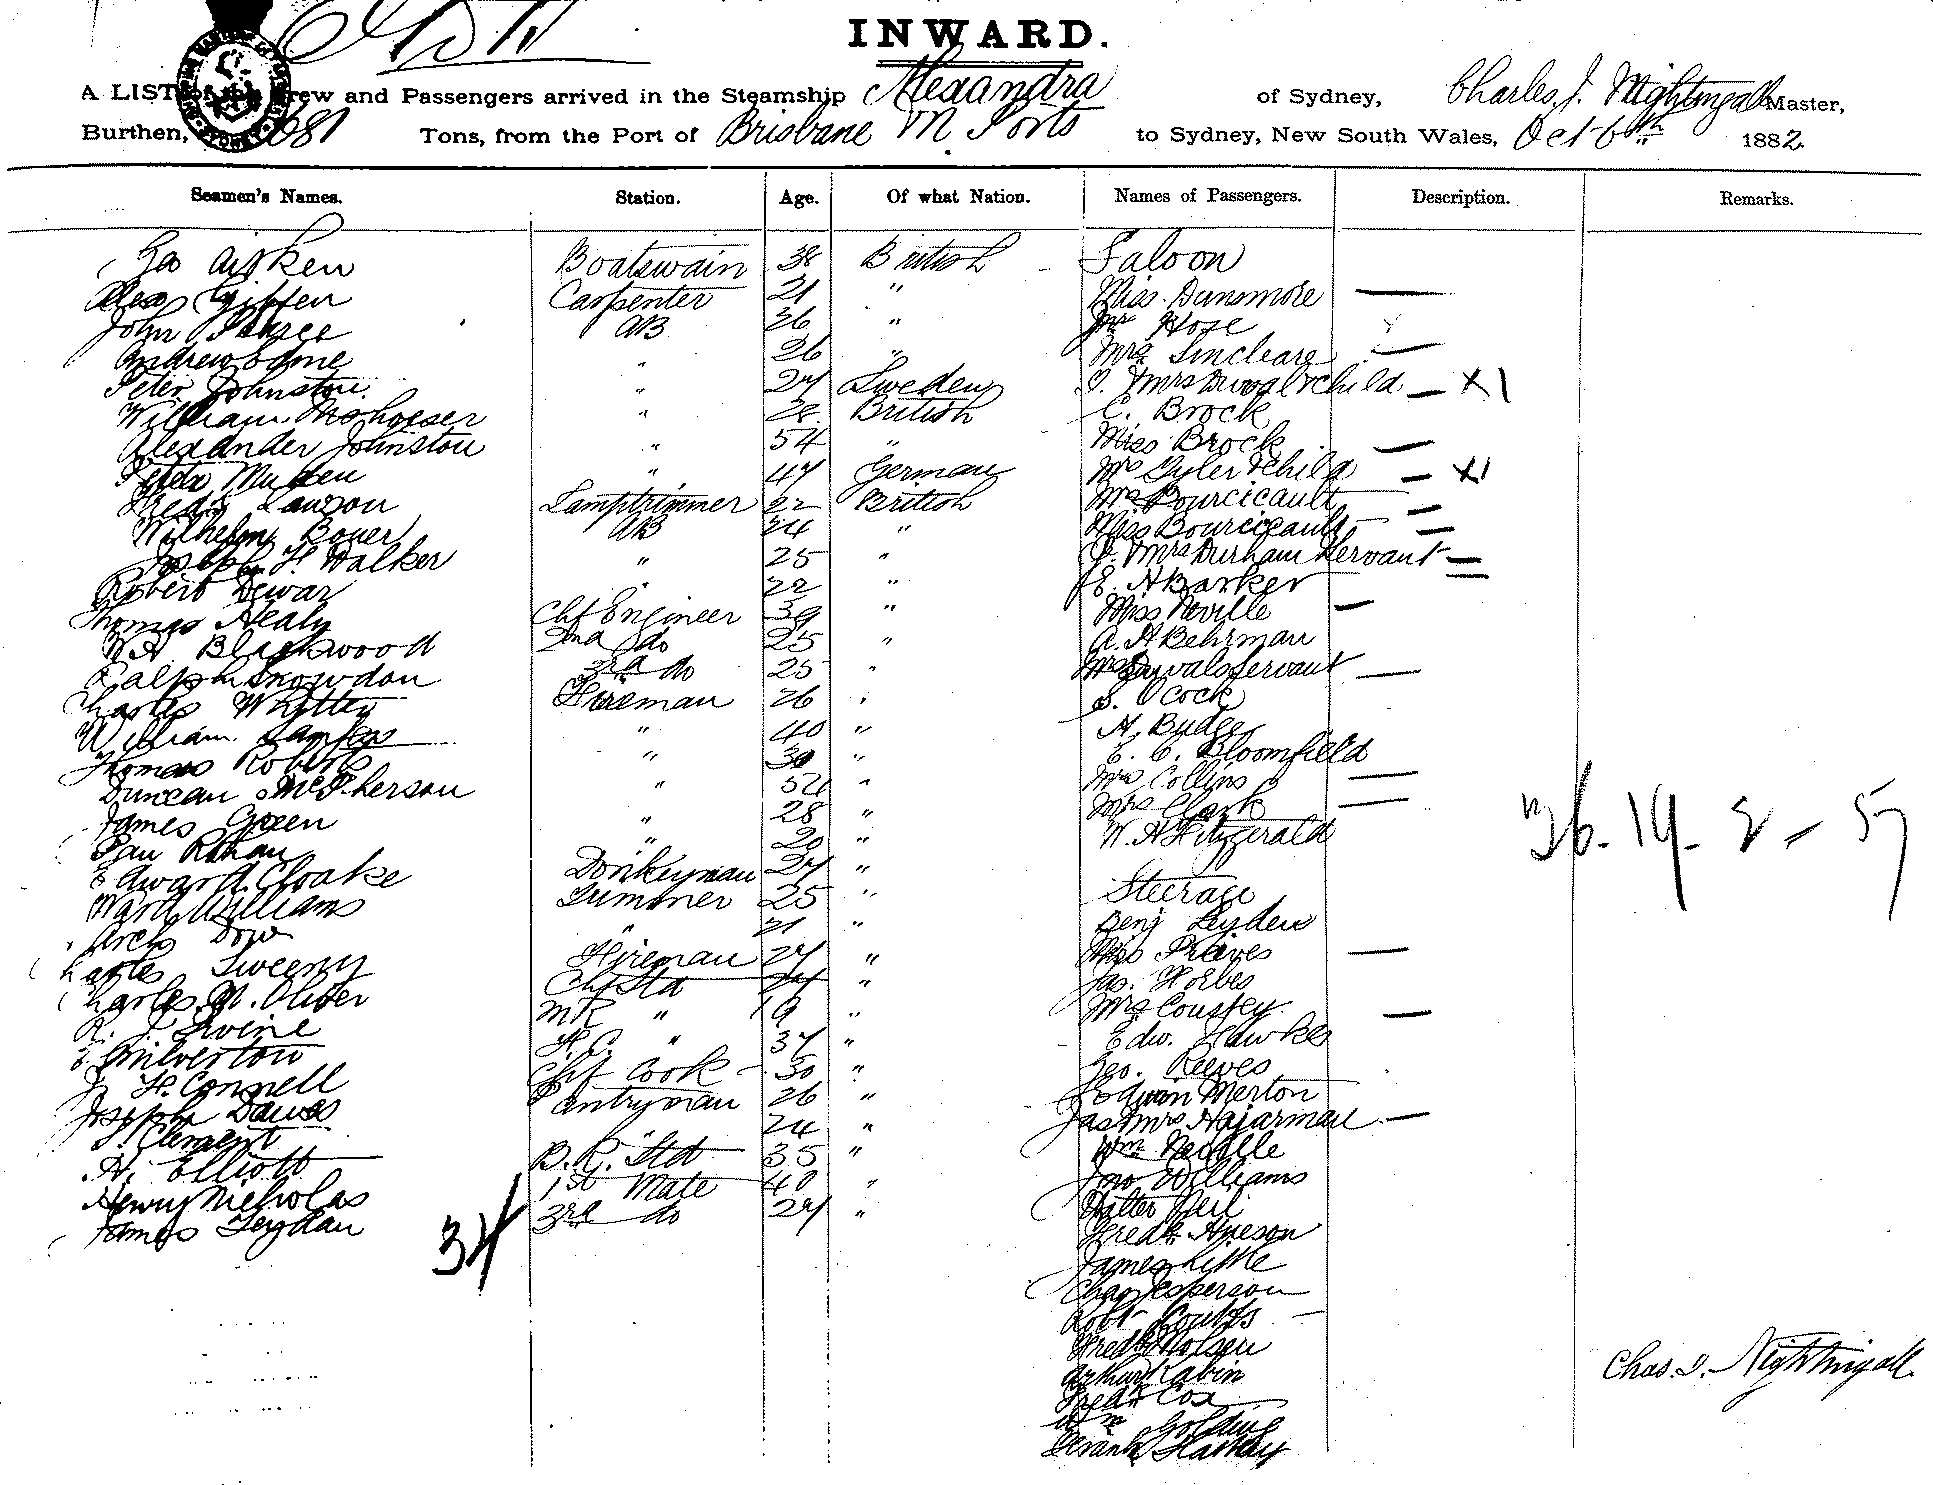 INWARD.
A LIST of the Crew and Passengers arrived in the Steamship Alexandra of Sydney, Charles J. Nightingall Master,
Burthen, 681 Tons, from the Port of Brisbane M. Ports to Sydney, New South Wales, Oct 6th 1882
Seamen's Names. Station. Age. Of what Nation. Names of Passengers. Description. Remarks.
Geo Aitken Boatswain 38 British Saloon
Alex Giffen Carpenter 21 " Miss Dunsmore
John Pearce AB 26 " Mr Hose
Andrew 26 " Mrs Sincleare
Peter Johnston " 27 Sweden Mrs Duval & child X 1
William " 28 British C. Brock
Alexander Johnston " 54 " Miss Brock
Peter " 47 German Mrs Gyler & child X1
Fredk Lawson Lamptrimmer 22 British Mrs Bourcicault
Wilhelm Bower AB 24 " Miss Bourcicault
Joseph H. Walker " 25 " Mrs Durham Servant
Robert Dewar " 22 " E. A Barker
Thomas Healy Chf Engineer 39 " Miss Neville
W A Blackwood 2nd do 25 " A. H Behrman
Ralph Snowdon 3rd do 25 " Mrs Duvals servant
Charles Whitten Fireman 26 " S. Cock
William " 40 " A. Budge
Thomas Roberts " 30 " E. C. Bloomfield
Duncan McPherson " 54 " Mrs Collins
James Green " 28 " Mrs Clark
" 20 " W. A Fitzgerald
36. 19. 2 - 57
Edward Cloake Donkeyman 27 " Steerage
Ward Williams Trimmer 25 "
Arch Dow " 21 " Benj Leyden
Charles Sweeny Fireman 27 " Miss
Charles M. Oliver Chf Std 24 " Jas. Forbes
R. J. Irvine " 19 " Mrs
E Milverton F.C. " 37 " Edw. Hawkes
J. H. Connell Chf Cook 30 " Geo. Reeves
Joseph Dawes Pantryman 26 " Edwin Merton
Clement " 24 " Jas & Mrs Hajarman
H. Elliott B.R. Std 35 " Wm Neville
Henry Nicholas 1st Mate 40 " Jno Williams
James Leydan 3rd do 27 " Walter Neil
34
Fredk Hueson
James Little
Chas Jesperson
Robt Coutts
Fredk Nolsen
Arthur Rabin
Fredk Cox
Wm Golding
Frank
Chas. J. Nightingall